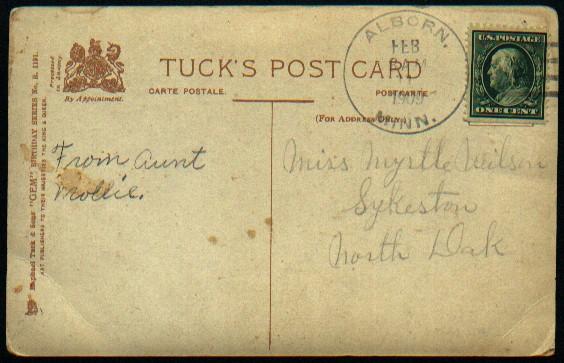 TUCK'S POST CARD
CARTE POSTALE.
POSTKARTE
(FOR ADDRESS ONLY.)
By Appointment.
Raphael Tuck & Sons' "GEM" BIRTHDAY SERIES No. R. 1191.
ART PUBLISHERS TO THEIR MAJESTIES THE KING & QUEEN.
ALBORN,
FEB
1909
MINN.
U.S. POSTAGE
ONE CENT
From Aunt
Mollie.
Miss Myrtle Neilson
Sykeston
North Dak